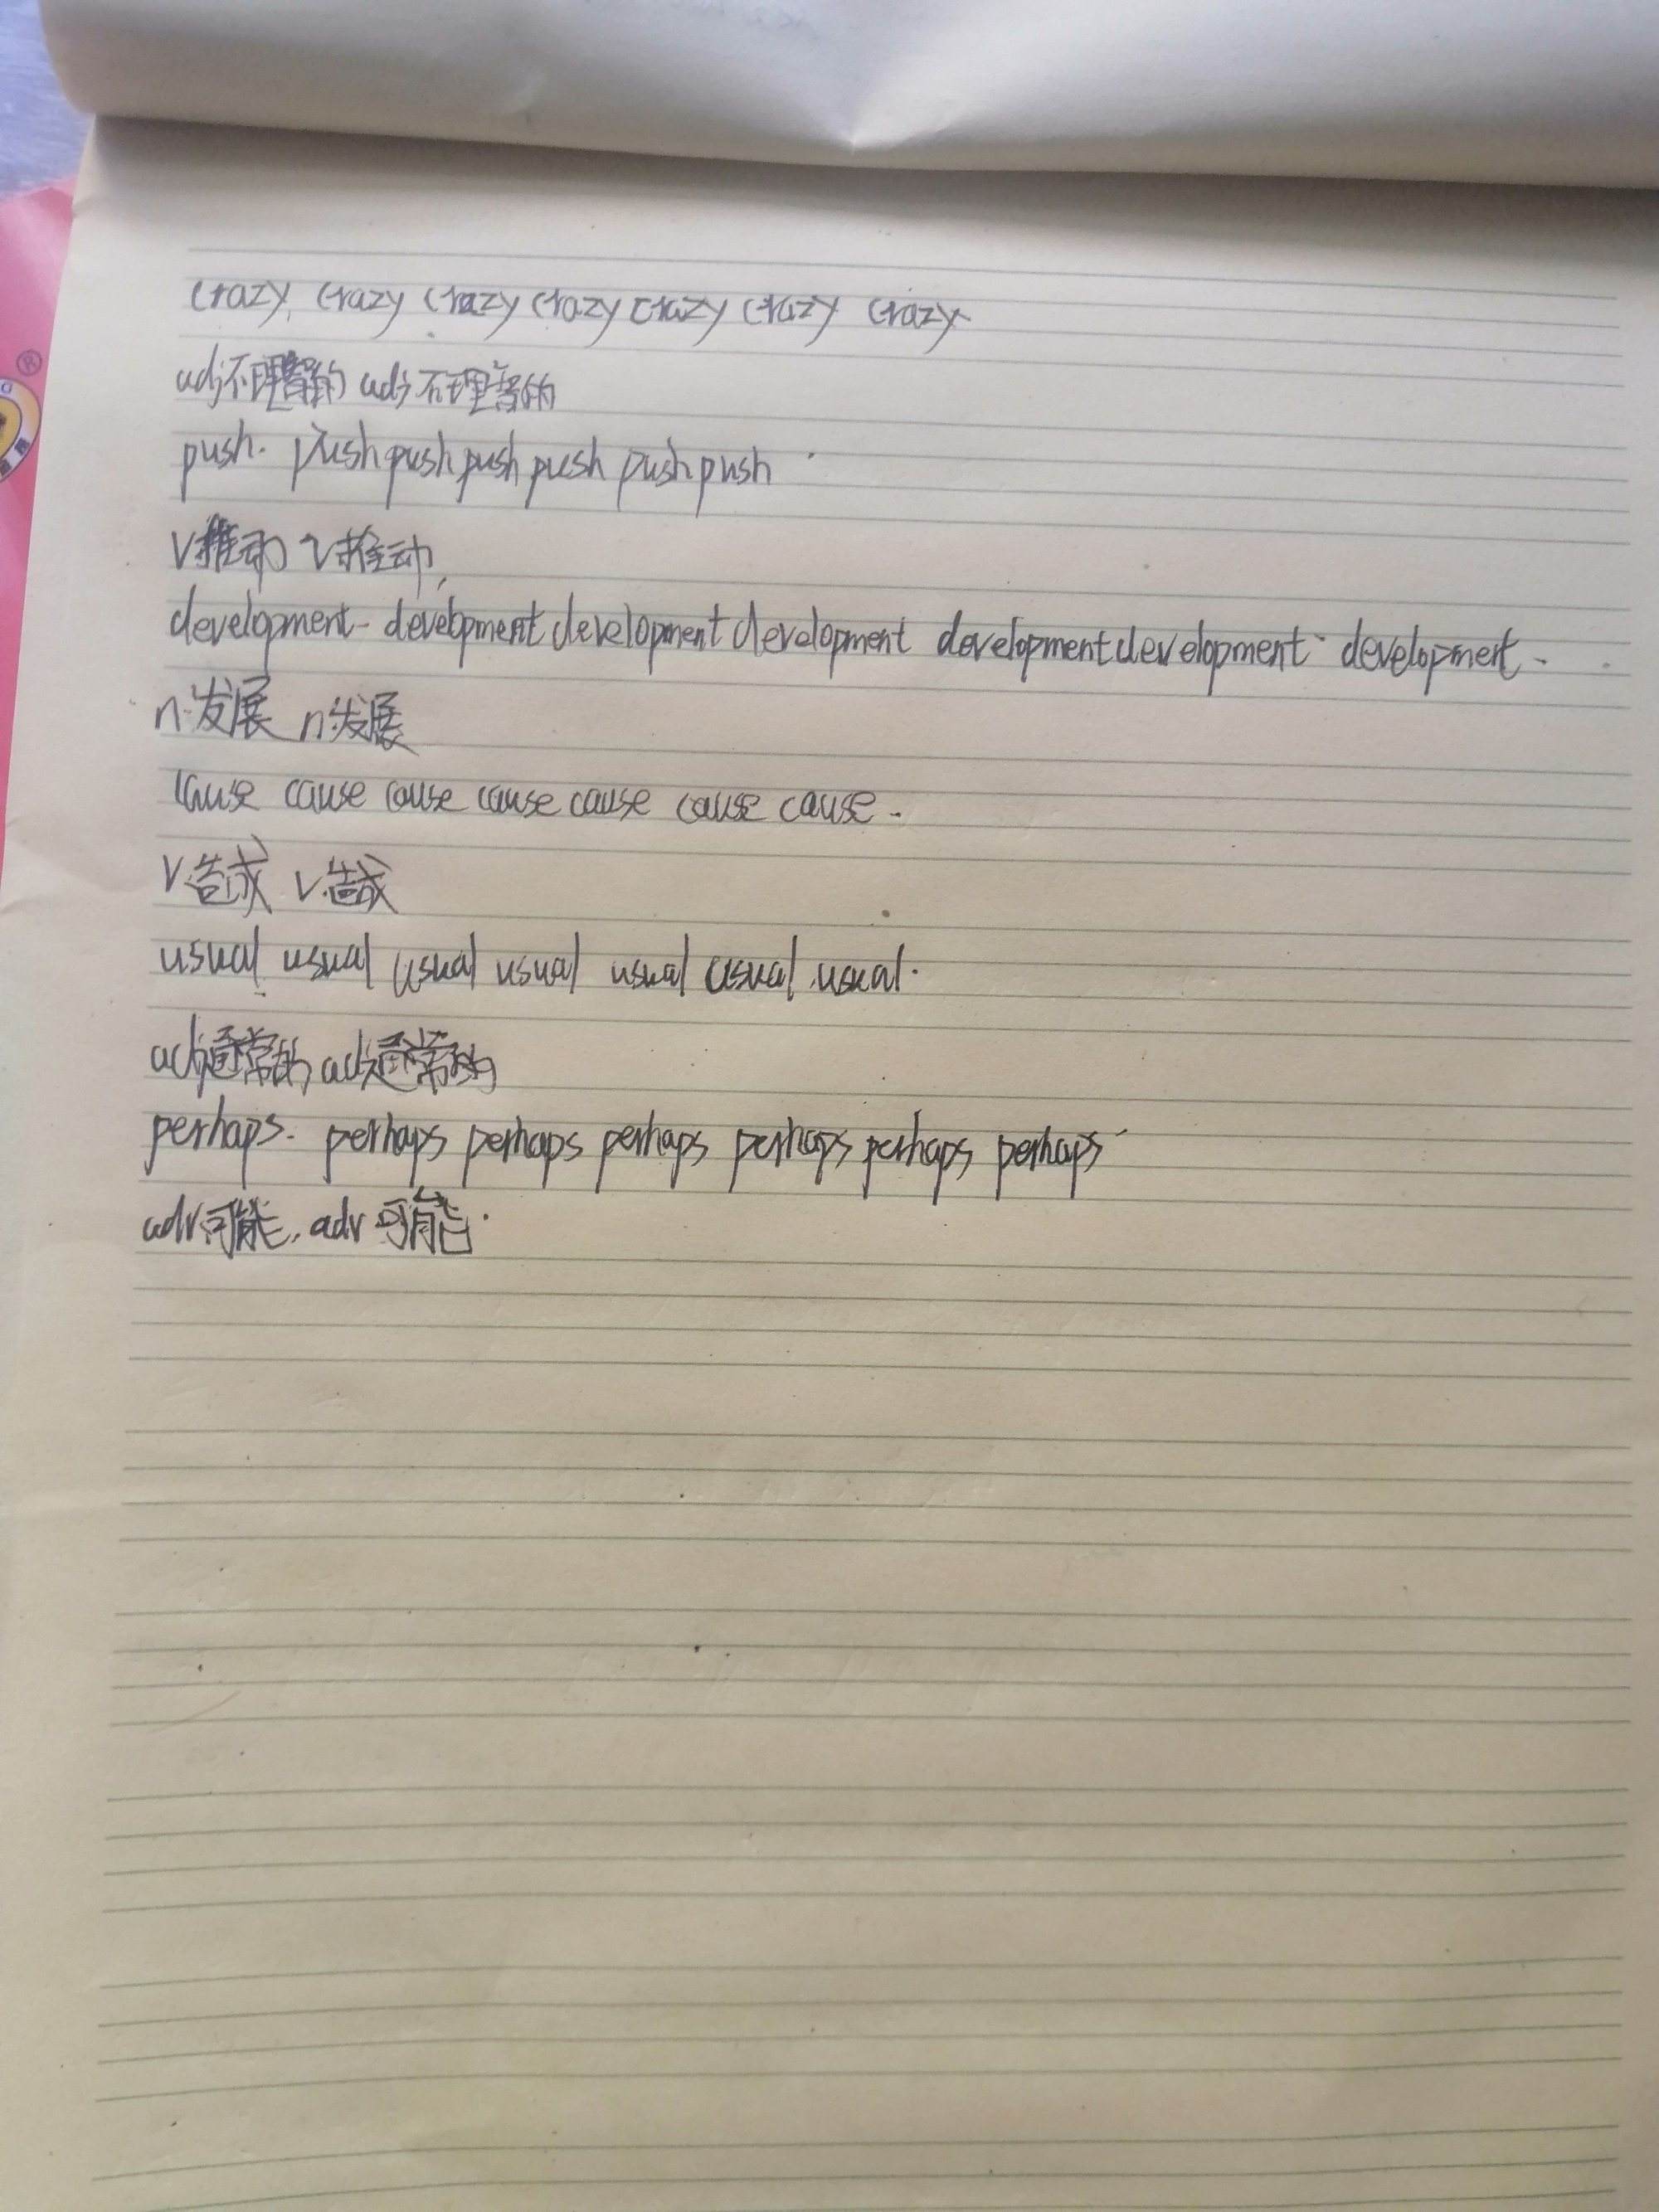 crazy, crazy crazy crazy crazy crazy crazy
adj不理智的 adj 不理智的
push. push push push push push push
V推动 V推动,
development- development development development development development development-
n.发展 n.发展
cause cause couse cause cause cause cause-
V.造成 V.造成
usual usual usual usual usual usual usual.
adj通常的 adj通常的
perhaps- perhaps perhaps perhaps perhaps perhaps perhaps
adv可能, adv 可能.
®